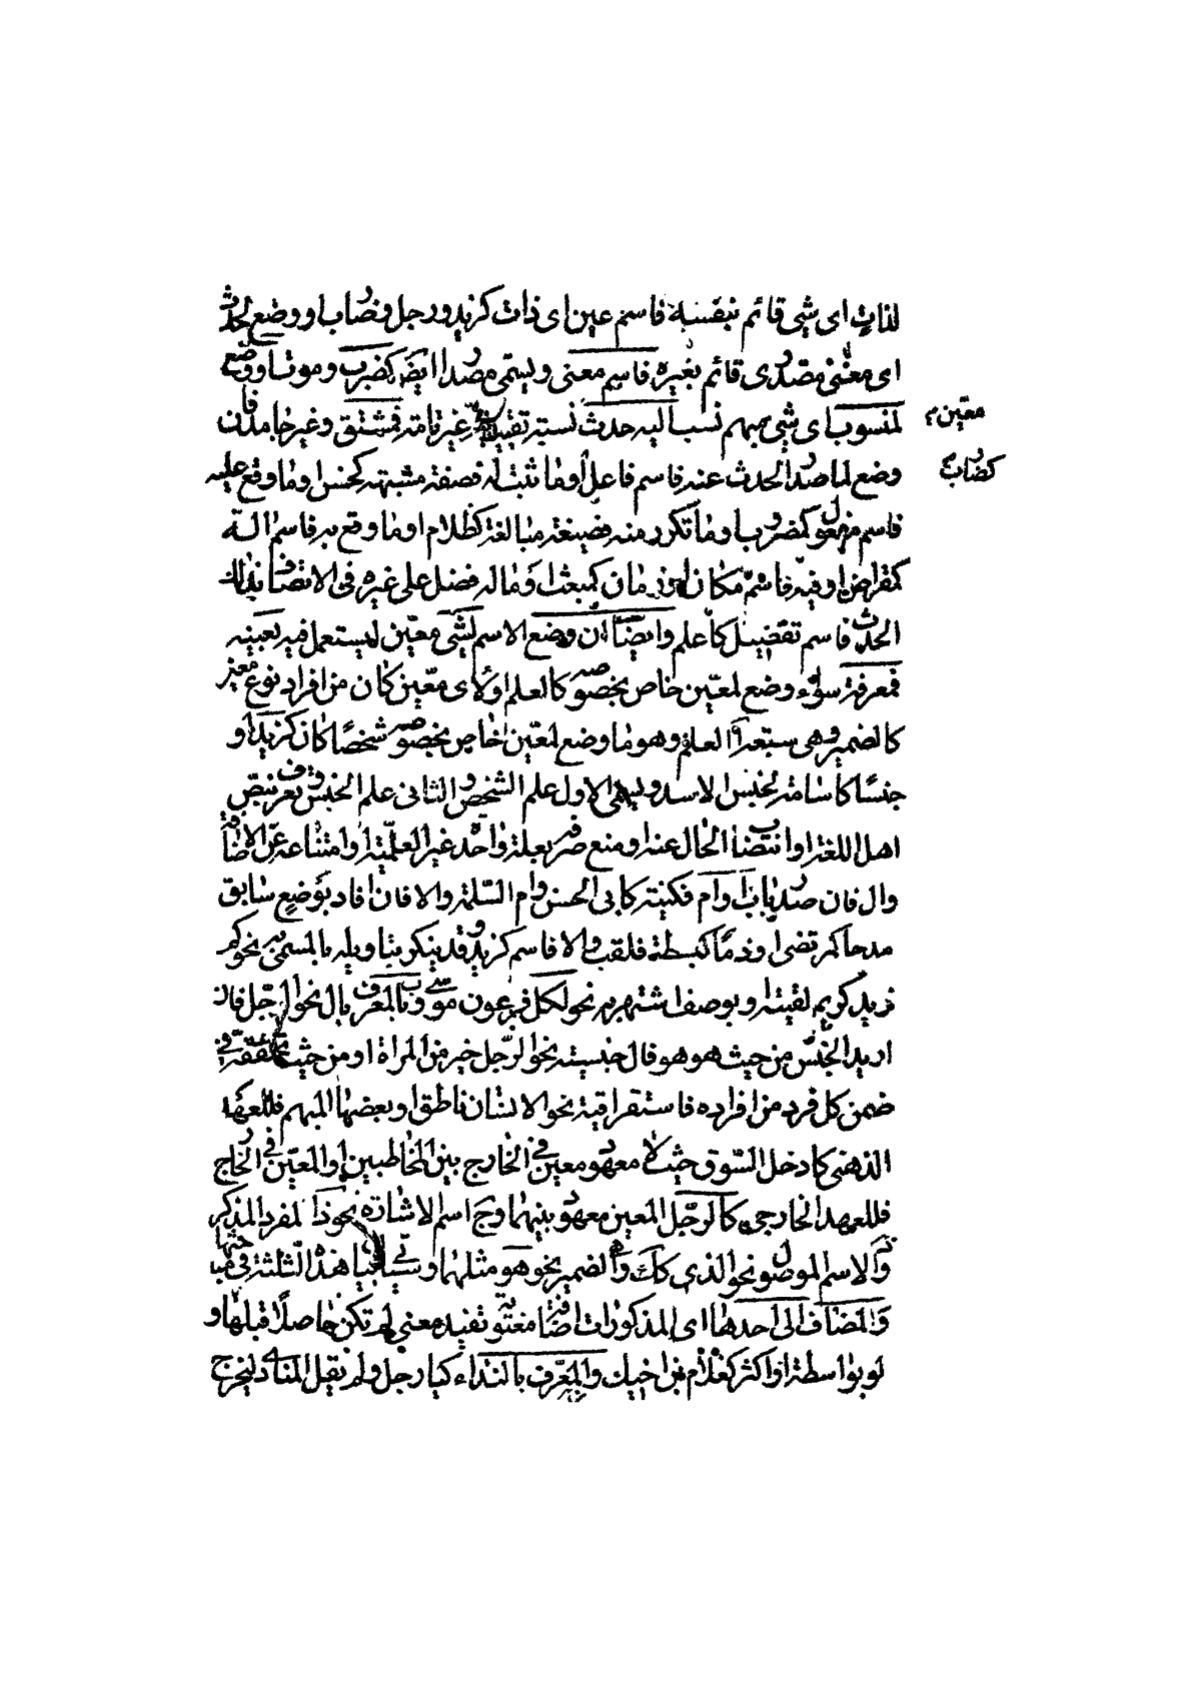 لذات ای شیء قائم بنفسه فاسم عین ای ذات کزید ورجل وضراب او وضع لحدث
ای معنی مصدری قائم بغیره فاسم معنی ویسمی مصدرا ایضا کضرب وموت او وضع
لمنسوب ای شیء مبهم نسب الیه حدث نسبة تقییدیة غیر تامة فمشتق وغیره جامد فان
معین
وضع لما صدر الحدث عنه فاسم فاعل او ما ثبت له فصفة مشبهة کحسن او ما وقع علیه
کضارب
فاسم مفعول کمضروب او ما تکرر منه فصیغة مبالغة کظلام او ما وقع به فاسم آلة
کمقراض او فیه فاسم مکان او زمان کمبعث او ما له فضل علی غیره فی الاتصاف بذلک
الحدث فاسم تفضیل کاعلم وایضا ان وضع الاسم لشیء معین لیستعمل فیه بعینه
فمعرفة سواء وضع لمعین خاص بخصوصه کالعلم او لای معین کان من افراد نوع معین
کالضمیر وهی ستة العلم وهو ما وضع لمعین خاص بخصوصه شخصا کان کزید او
جنسا کاسامة لجنس الاسد ویسمی الاول علم الشخص والثانی علم الجنس ویعرف بنص
اهل اللغة او انتصاب الحال عنه او منع صرفه بعلة واحدة غیر العلمیة او امتناعه عن الاضافة
وال فان صدر باب او ام فکنیة کابی الحسن وام السلمة والا فان افاد بوضع سابق
مدحا کمرتضی او ذما کبطة فلقب والا فاسم کزید وقد ینکر بتاویله بالمسمی به نحو کم
زید کریم لقیته او بوصف اشتهر به نحو لکل فرعون موسی والمعرف بال نحو الرجل فان
ارید الجنس من حیث هو هو فال جنسیة نحو الرجل خیر من المراة او من حیث تحققه فی
ضمن کل فرد من افراده فاستغراقیة نحو الانسان ناطق او بعضها المبهم فللعهد
الذهنی کادخل السوق حیث لا معهود معین فی الخارج بین المخاطبین او المعین فی الخارج
فللعهد الخارجی کالرجل المعین معهود بینهما وج اسم الاشارة نحو ذا لمفرد المذکر
والاسم الموصول نحو الذی کک والضمیر نحو هو مثلهما وسیاتی هذه الثلثة فی
والمضاف الی احدها ای المذکورات اضافة معنویة تفید معنی لم تکن حاصلا قبلها و
لو بواسطة او اکثر کغلام بن اخیک والمعرف بالنداء کیا رجل ولم یقل المنادی لیخرج